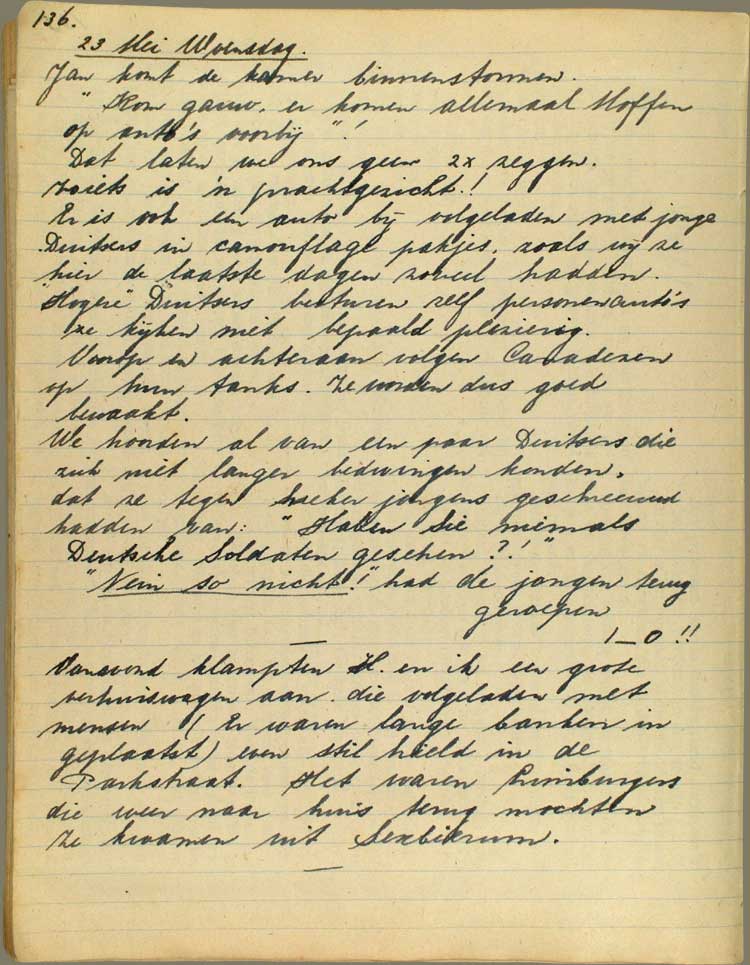 136.
23 Mei Woensdag.
Jan komt de kamer binnenstormen.
"Kom gauw, er komen allemaal Moffen
op auto's voorbij"!
Dat laten we ons geen 2x zeggen.
Zoiets is 'n prachtgezicht!
Er is ook een auto bij volgeladen met jonge
Duitsers in camouflage pakjes, zoals wij ze
hier de laatste dagen zoveel hadden.
"Hogere" Duitsers besturen zelf personenauto's
ze kijken niet bepaald plezierig.
Voorop en achteraan volgen Canadezen
op hun tanks. Ze worden dus goed
bewaakt.
We hoorden al van een paar Duitsers die
zich niet langer bedwingen konden,
dat ze tegen jongens geschreeuwd
hadden van: "Haben Sie niemals
Deutsche Soldaten gesehen?!"
"Nein so nicht!" had de jongen terug
geroepen
1-0!!
Vanavond klampten H. en ik een grote
verhuiswagen aan die volgeladen met
mensen (Er waren lange banken in
geplaatst) even stil hield in de
Parkstraat. Het waren Limburgers
die weer naar huis terug mochten
Ze kwamen uit Sexbierum.